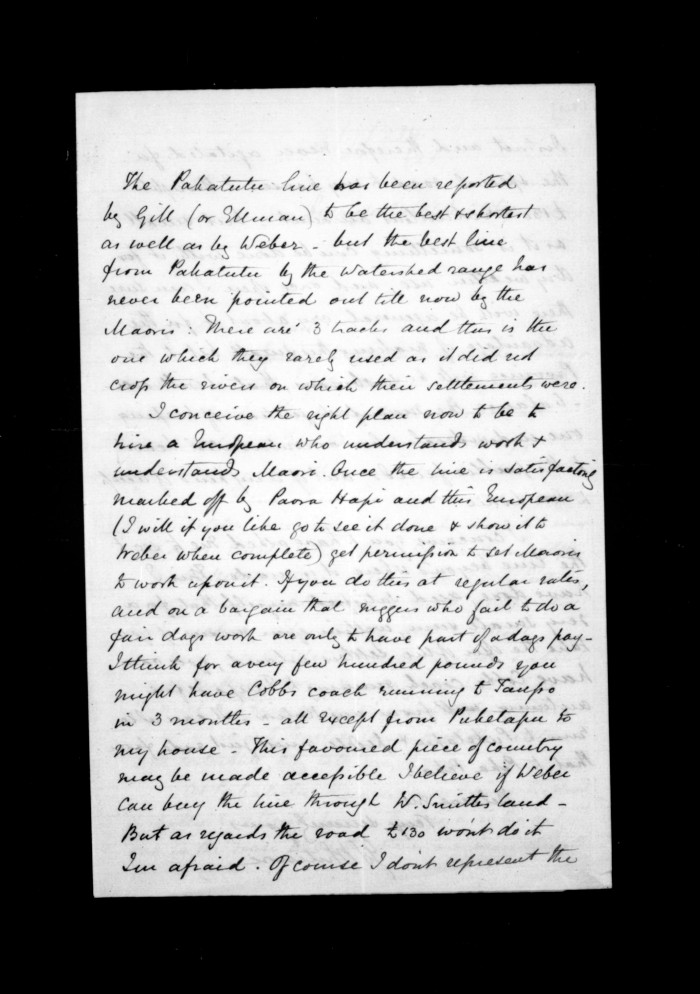 The Pakatutu line has been reported
by Gill (or Ellman) to be the best & shortest
as well as by Weber - but the best line
from Pakatutu by the watershed range has
never been pointed out till now by the
Maoris: There are 3 tracks and this is the
one which they rarely used as it did not
cross the rivers on which their settlements were.
I conceive the right plan now to be to
hire a European who understands work &
understands Maori. Once the line is satisfactorily
marked off by Paora Hapi and this European
(I will if you like go to see it done & show it to
Weber when complete) get permission to set Maoris
to work upon it. If you do this at regular rates,
and on a bargain that niggers who fail to do a
fair days work are only to have part of a days pay -
I think for a very few hundred pounds you
might have Cobbs coach running to Taupo
in 3 months - all except from Puketapu to
my house - This favoured piece of country
may be made accessible I believe if Weber
can buy the line through W. Smiths land -
But as regards the road £130 won't do it
I'm afraid. Of course I don't represent the